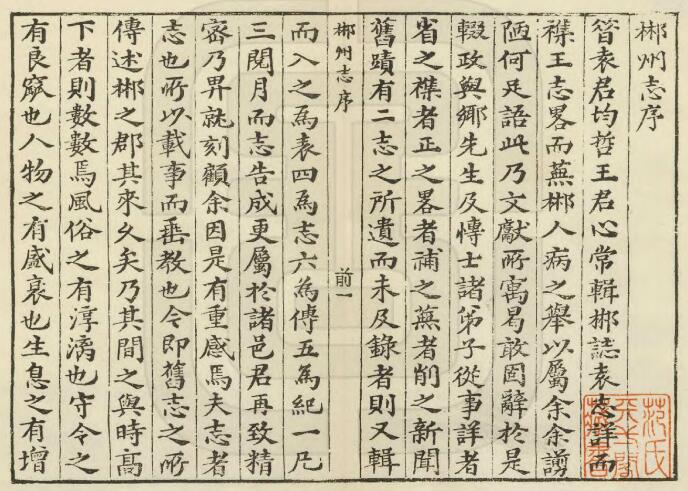 郴州志序
昔袁君均哲王君心常輯郴誌袁志詳而
襍王志畧而蕪郴人病之舉以屬余余謭
陋何足語此乃文獻所寓曷敢固辭於是
輟政與鄉先生及愽士諸弟子從事詳者
省之襍者正之畧者補之蕪者削之新聞
舊蹟有二志之所遺而未及錄者則又輯
郴州志序 前一
而入之爲表四爲志六爲傳五爲紀一凡
三閱月而志告成更屬於諸邑君再致精
宻乃畀就刻顧余因是有重感焉夫志者
志也所以載事而垂教也今即舊志之所
傳述郴之郡其來久矣乃其間之與時高
下者則數數焉風俗之有淳漓也守令之
有良窳也人物之有盛衰也生息之有增
范氏
天一閣
藏書